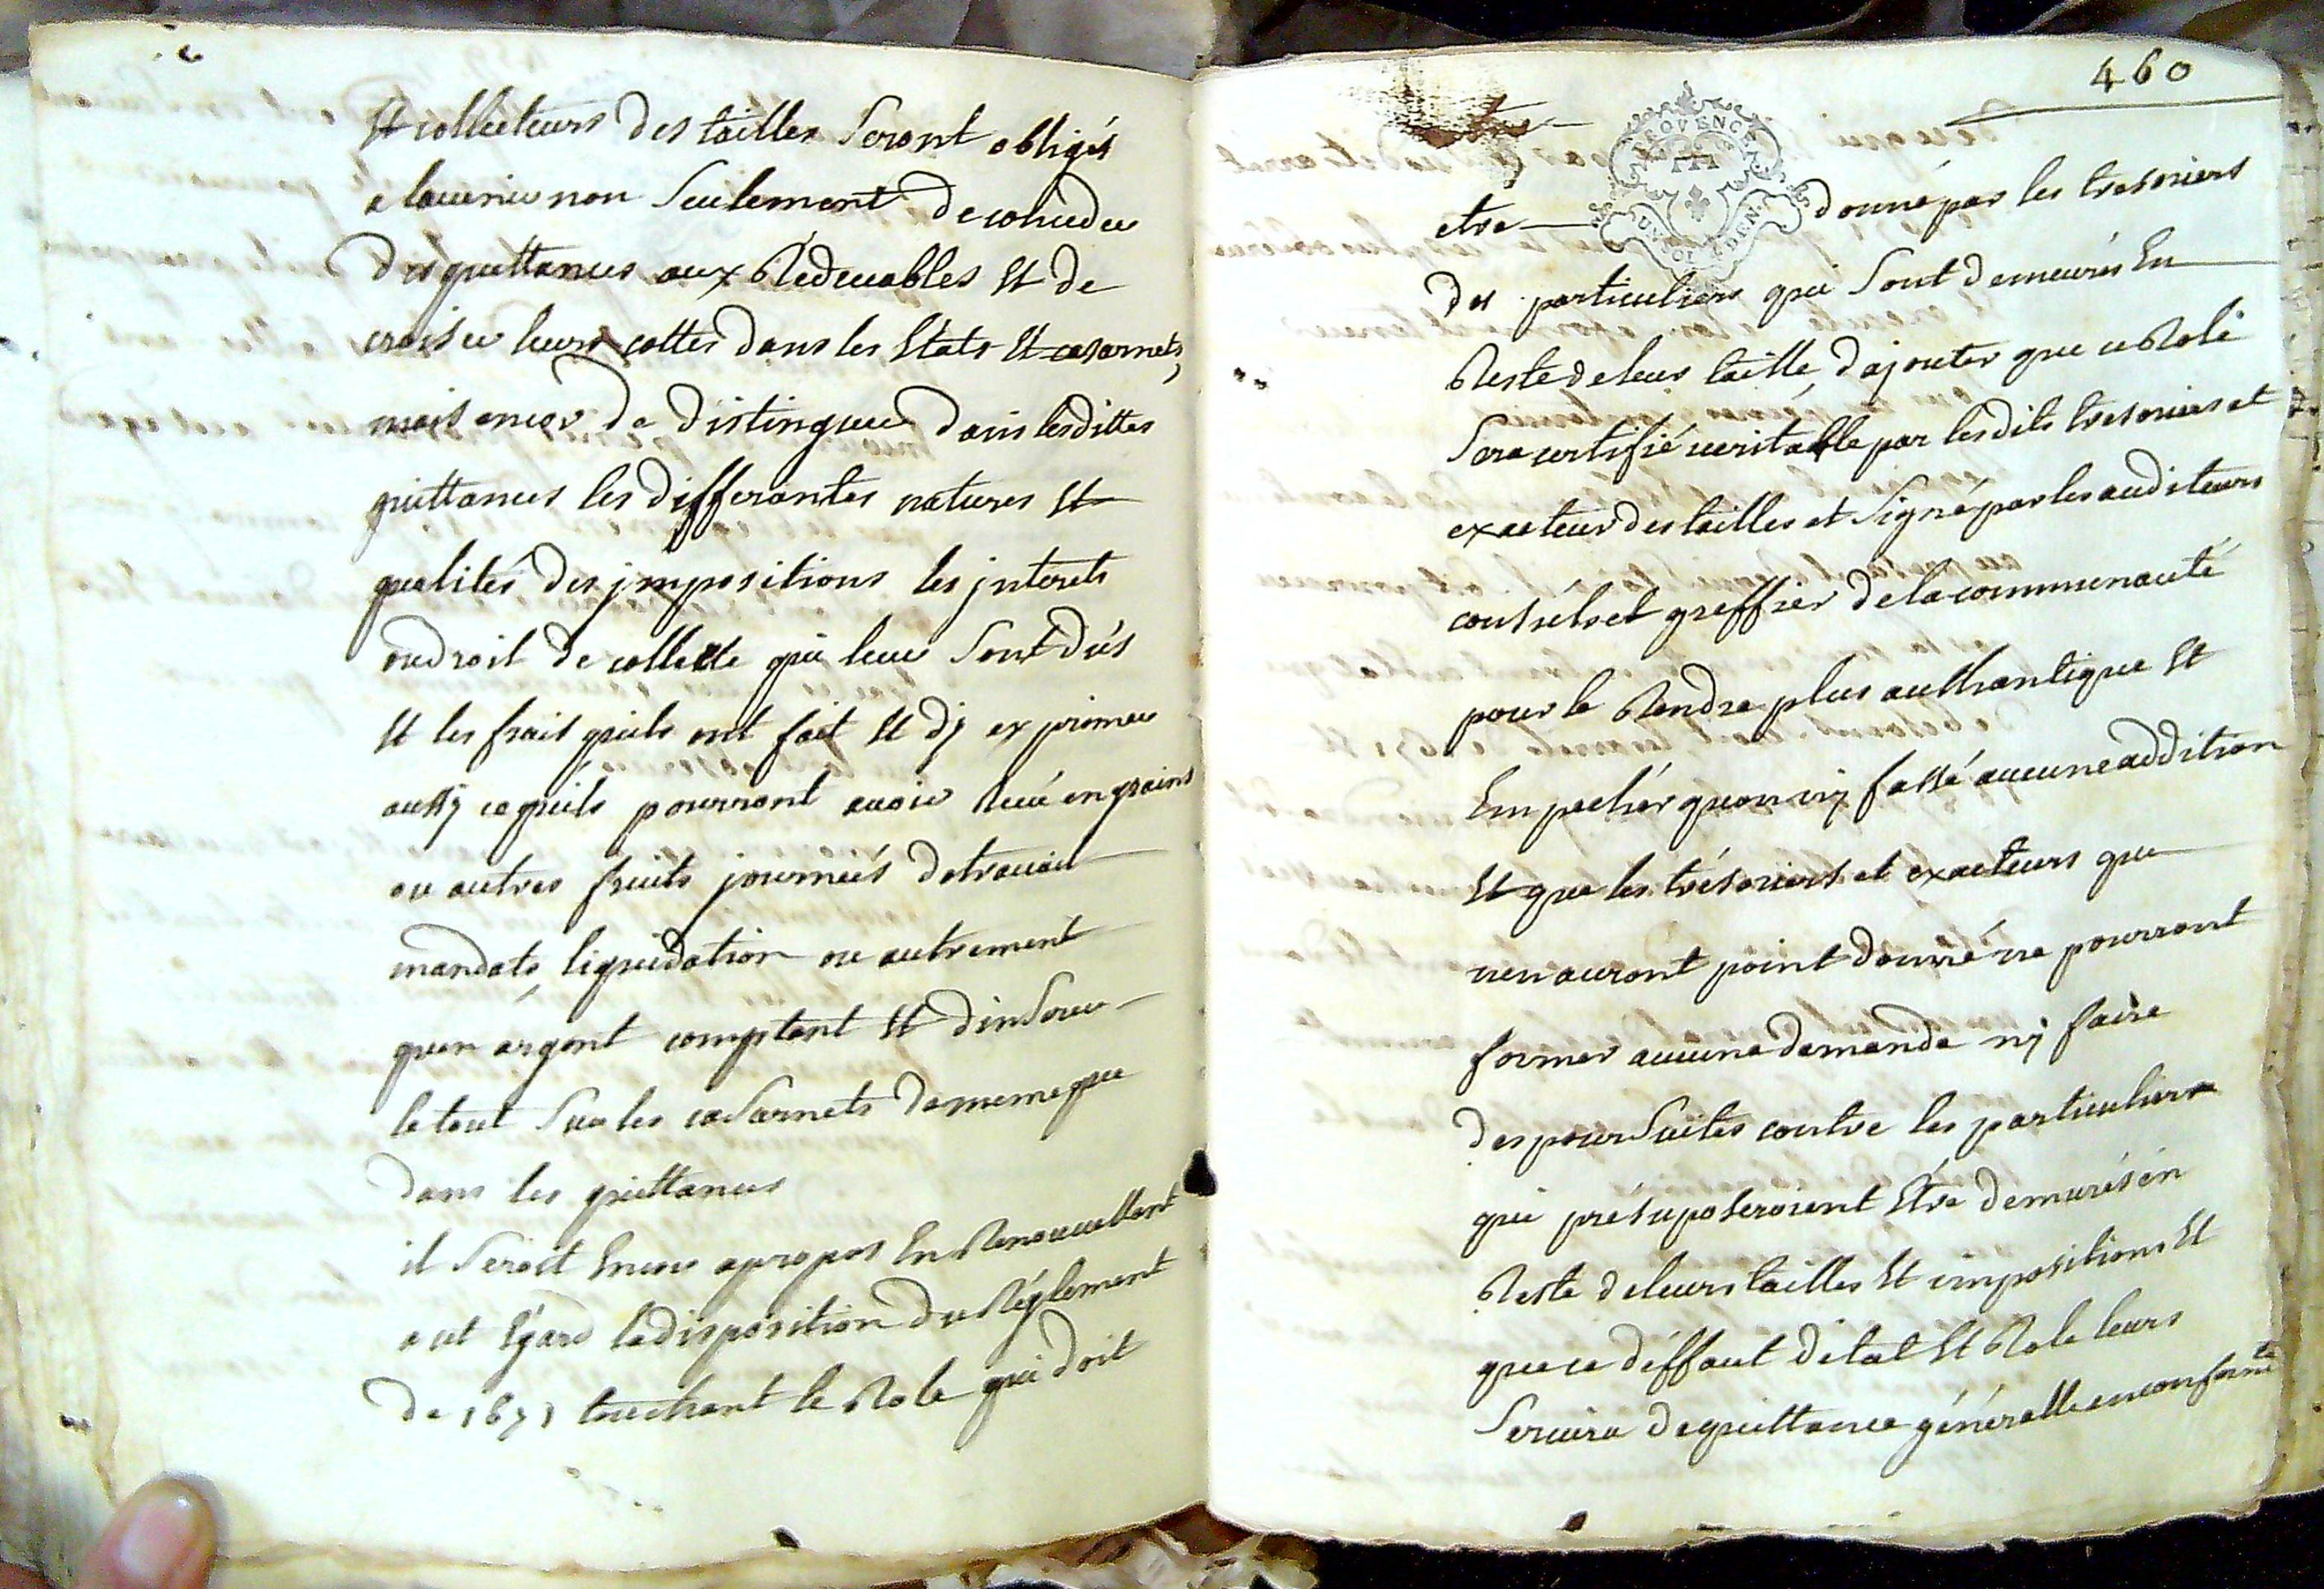 Et collecteurs des tailles Seront obligés
a lavenir non Seulement de conceder
des quittances aux Redevables Et de
croiser leurs cottes dans les Etats Et casarnets,
mais encor de distinguer dans lesdittes
quittances les differantes natures Et
qualités des jmpositions les jnterets
ou droit de collecte qui leur Sont dús
Et les frais quils ont fait Et dy exprimer
aussy ce quils pourront avoir recú en grains
ou autres fruits journéés de travail
mandats, liquidation ou autrement
quen argent comptant Et dinserer
le tout Sur les casarnets de meme que
dans les quittances
il Seroit Encor apropos En Renouvellant
a cet Egard la disposition du Réglement
de 1671 touchant le Role qui doit
460
PROVENCE
UN SOL 4 DEN.
etre donné par les tresoriers
des particuliers qui Sont demeurés En
Reste de leur taille, dajouter que ce Role
Sera certifié veritable par lesdits tresoriers et
exacteur des tailles et Signé par les auditeurs
consuls et greffier de la communauté
pour le Rendre plus authantique Et
Empecher quon ny fasse aucune addition
Et que les trésoriers et exacteurs qui
nen auront point donné ne pourront
former aucune demande ny faire
des pourSuites contre les particuliers
qui présuposeroient Etre demurés en
Reste de leurs tailles Et impositions Et
que ce déffaut détat Et Role leurs
Servira de quittance généralle en conformité